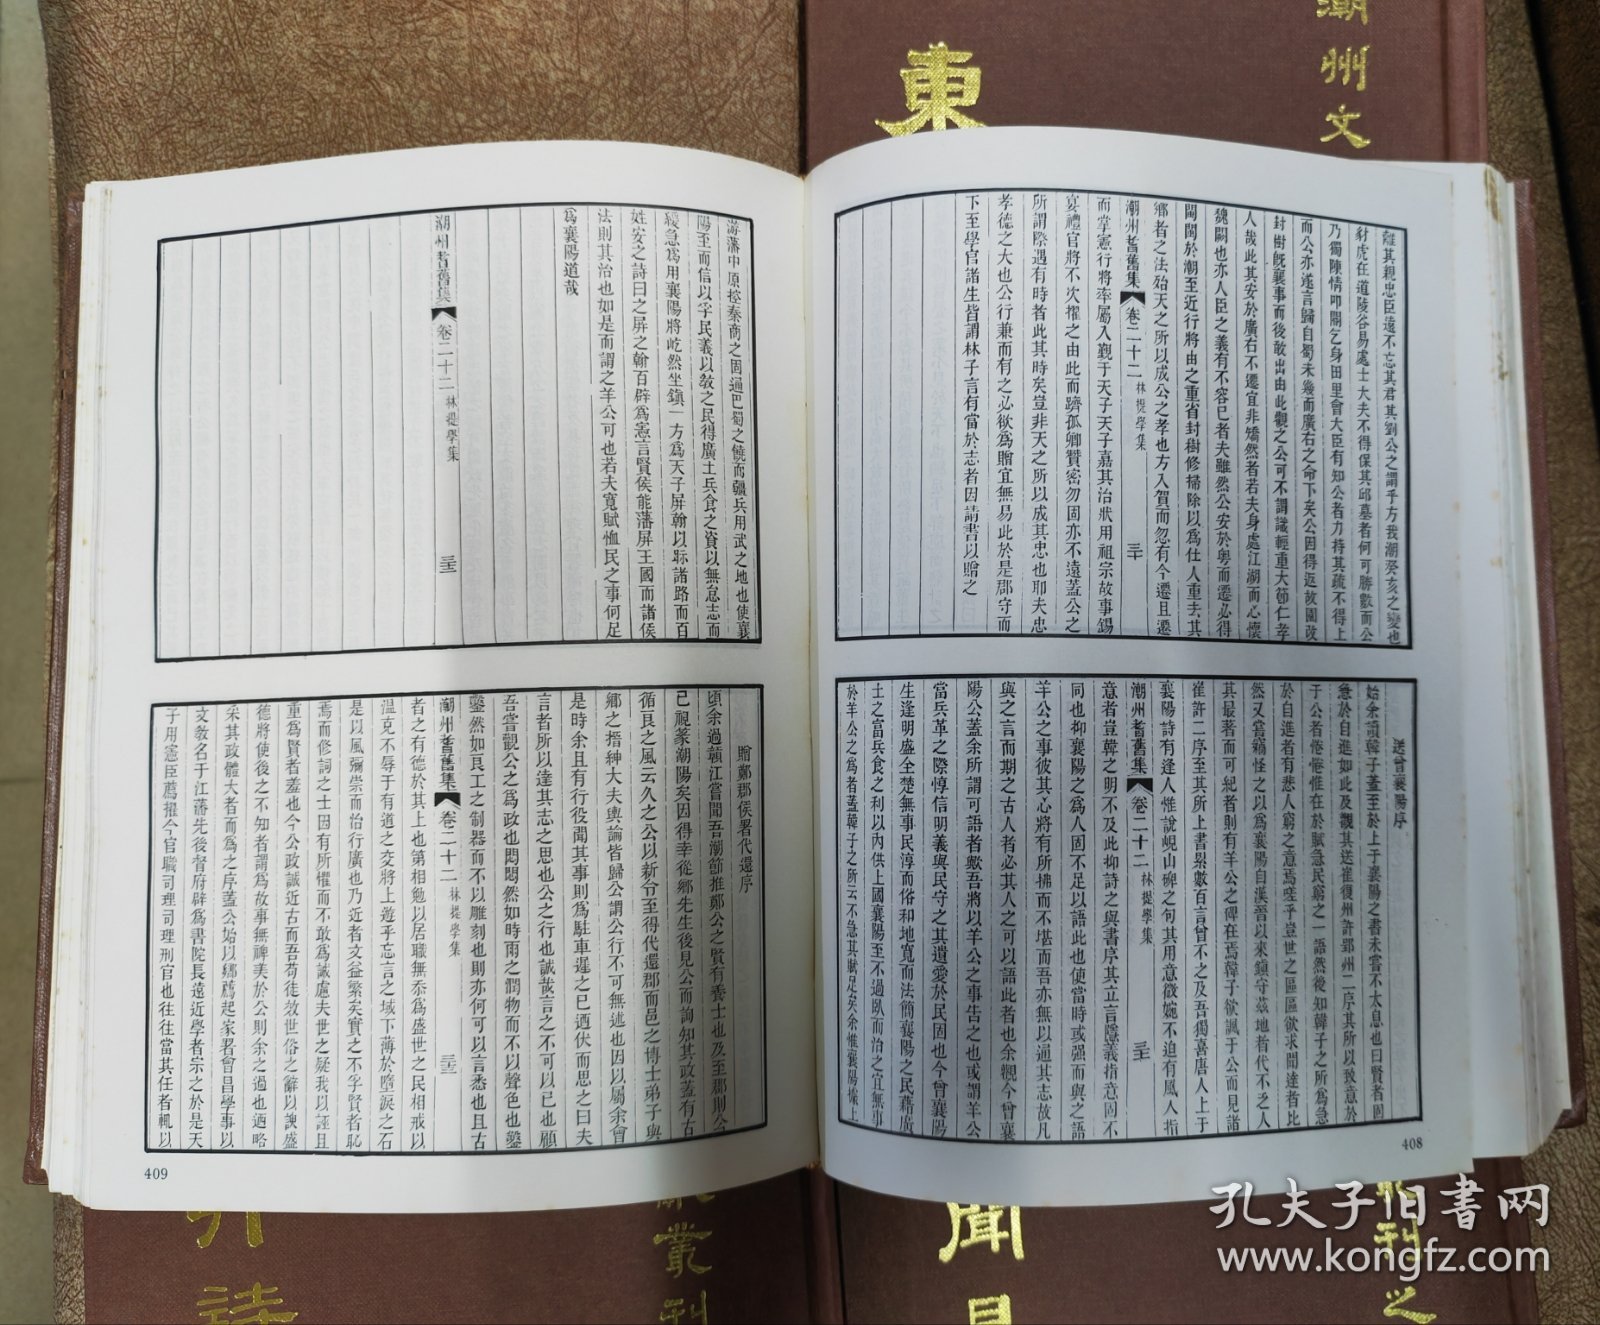 離其親忠臣遠不忘其君其劉公之謂乎方我潮癸亥之變也
豺虎在道陵谷易處士大夫不得保其邱墓者何可勝數而公
乃獨陳情叩關乞身田里會大臣有知公者力持其疏不得上
而公亦遂言歸自蜀未幾而廣右之命下矣公因得返故園改
封樹既襄事而後敢出由此觀之公可不謂識輕重大節仁孝
人哉此其安於廣右不遷宜非矯然者若夫身處江湖而心懷
魏闕也亦人臣之義有不容已者夫雖然公安於粵而遷必得
閩閩於潮至近行將由之重省封樹修掃除以為仕人重去其
鄉者之法殆天之所以成公之孝也方入賀而忽有今遷且遷
潮州耆舊集 卷二十二 林提學集 三十
而掌憲行將率屬入覲于天子天子嘉其治狀用祖宗故事錫
宴禮官將不次擢之由此而躋孤卿贊密勿固亦不遠蓋公之
所謂際遇有時者此其時矣豈非天之所以成其忠也耶夫忠
孝德之大也公行兼而有之必欲為贈宜無易此於是郡守而
下至學官諸生皆謂林子言有當於志者因請書以贈之
送曾襄陽序
始余讀韓子蓋至於上于襄陽之書未嘗不太息也曰賢者固
急於自進如此及觀其送崔復州許郢州二序其所以致意於
于公者惓惓惟在於賦急民窮之一語然後知韓子之所為急
於自進者有悲人窮之意焉嗟乎豈世之區區欲求聞達者比
然又嘗竊怪之以為襄陽自漢晉以來鎮守茲地者代不乏人
其最著而可紀者則有羊公之碑在焉韓子欲諷于公而見諸
崔許二序至其所上書累數百言曾不之及吾獨喜唐人上于
襄陽詩有逢人惟說峴山碑之句其用意微婉不迫有風人指
潮州耆舊集 卷二十二 林提學集 三十一
意者豈韓之明不及此抑詩之與書序其立言隱義指意固不
同也抑襄陽之為人固不足以語此也使當時或强而與之語
羊公之事彼其心將有所拂而不堪而吾亦無以通其志故凡
與之言而期之古人者必其人之可以語此者也余覩今曾襄
陽公蓋余所謂可語者歟吾將以羊公之事告之也或謂羊公
當兵革之際惇信明義與民守之其遺愛於民固也今曾襄陽
生逢明盛全楚無事民淳而俗和地寬而法簡襄陽之民藉廣
土之富兵食之利以內供上國襄陽至不過臥而治之宜無事
於羊公之為者蓋韓子之所云不急其賦足矣余惟襄陽據上
游藩中原控秦商之固通巴蜀之饒而驅兵用武之地也使襄
陽至而信以孚民義以敎之民得廣土兵食之資以無怠志而
緩急為用襄陽將屹然坐鎮一方為天子屏翰以聯諸路而百
姓安之詩曰之屏之翰百辟為憲言賢侯能藩屏王國而諸侯
法則其治也如是而謂之羊公可也若夫寬賦恤民之事何足
為襄陽道哉
潮州耆舊集 卷二十二 林提學集 三十二
贈鄭郡侯署代還序
頃余過贛江嘗聞吾潮節推鄭公之賢有養士也及至郡則公
已視篆潮陽矣因得幸從鄉先生後見公而詢知其政蓋有古
循良之風云久之公以新令至得代還郡而邑之博士弟子與
鄉之搢紳大夫輿論皆歸公謂公行不可無述也因以屬余會
是時余且有行役聞其事則為駐車遲之已迺伏而思之曰夫
言者所以達其志之思也公之行也誠哉言之不可以已也顧
吾嘗觀公之為政也悶悶然如時雨之潤物而不以聲色也鑿
鑿然如良工之制器而不以雕刻也則亦何可以言悉也且古
潮州耆舊集 卷二十二 林提學集 三十三
者之有德於其上也第相勉以居職無忝為盛世之民相戒以
溫克不辱于有道之交將上遊乎忘言之域下薄於墮淚之石
是以風彌崇而怡行廣也乃近者文益繁矣實之不孚賢者恥
焉而修詞之士因有所懼而不敢為誠慮夫世之疑我以誣且
重為賢者羞也今公政誠近古而吾苟徒效世俗之辭以諛盛
德將使後之不知者謂為故事無裨美於公則余之過也迺略
采其政體大者而為之序蓋公始以鄉薦起家署會昌學事以
文敎名于江藩先後督府辟為書院長遠近學者宗之於是天
子用憲臣薦擢今官職司理司理刑官也往往當其任者輒以
409
408
東
聞
見
潮州文
叢刊之
叢刊
誌
孔夫子旧书网
www.kongfz.com